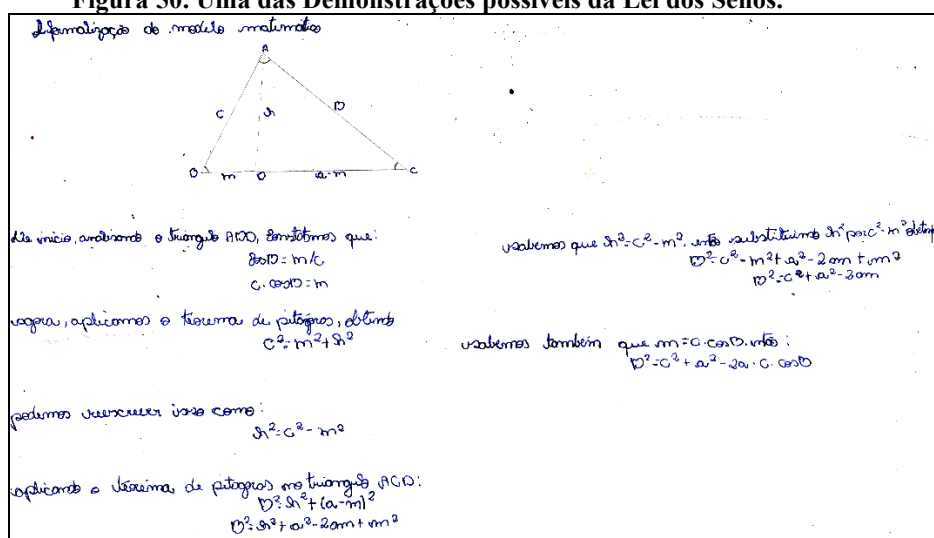 Figura 50. Uma das Demonstrações possíveis da Lei dos Senos.
do modelo matemático
A
C
h
B
m
D
a-m
C
De inicio, analisando o triangulo ABD, constatamos que:
cosB = m/c
c. cosB = m
agora, aplicamos o teorema de pitágoras, obtendo
c² = m² + h²
podemos reescrever isso como:
h² = c² - m²
aplicando o teorema de pitagoras no triangulo ACD:
b² = h² + (a-m)²
b² = h² + a² - 2am + m²
sabemos que h² = c² - m², então substituimos h² por c² - m²
b² = c² - m² + a² - 2am + m²
b² = c² + a² - 2am
sabemos também que m = c.cosB, então:
b² = c² + a² - 2a. c. cosB